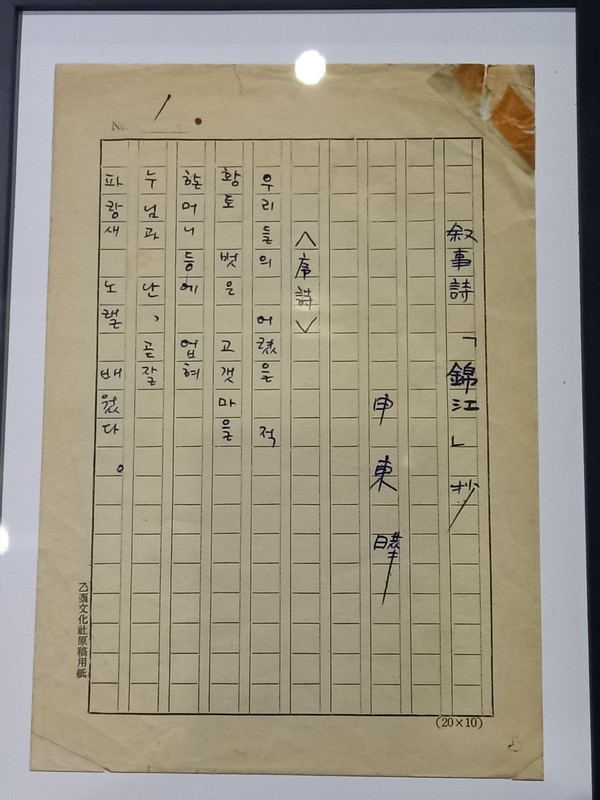 No. 1
叙事詩 「錦江」 抄
申東曄
<序詩>
우리들의 어렸을 적
황토 벗은 고갯마을
할머니 등에 업혀
누님과 난, 곧잘
파랑새 노랠 배웠다.
乙酉文化社原稿用紙
(20×10)